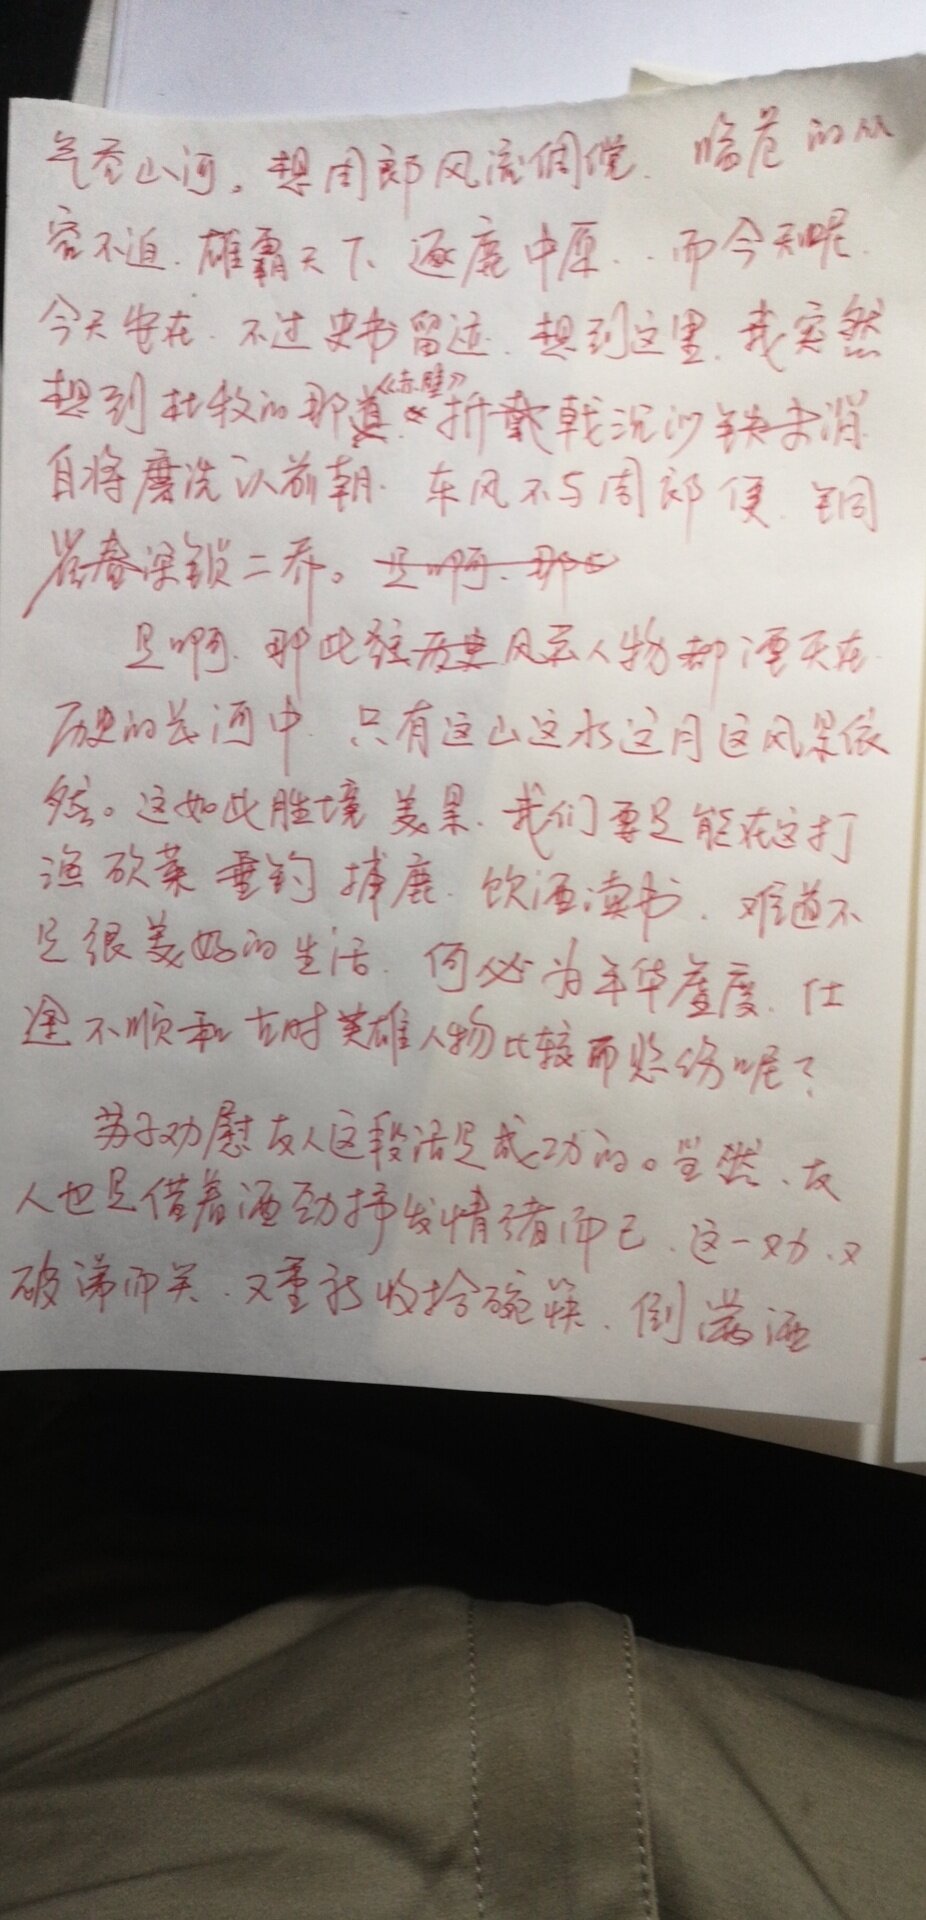 气吞山河。想周郎风流倜傥、临危的从
容不迫、雄霸天下、逐鹿中原..而今天呢、
今天安在、不过史书留迹、想到这里、我突然
想到杜牧的那首《赤壁》"折戟沉沙铁未消
自将磨洗认前朝、东风不与周郎便、铜
雀春深锁二乔。是啊、那些
是啊、那些历史风云人物都湮灭在
历史的长河中、只有这山这水这月这风景依
然。这如此胜境美景、我们要是能在这打
渔砍柴垂钓捕鹿、饮酒读书、难道不
是很美好的生活、何必为年华虚度、仕
途不顺和古时英雄人物比较而悲伤呢？
苏子劝慰友人这段话是成功的。当然、友
人也是借着酒劲抒发情绪而已、这一劝、又
破涕而笑、又重新收拾碗筷、倒满酒